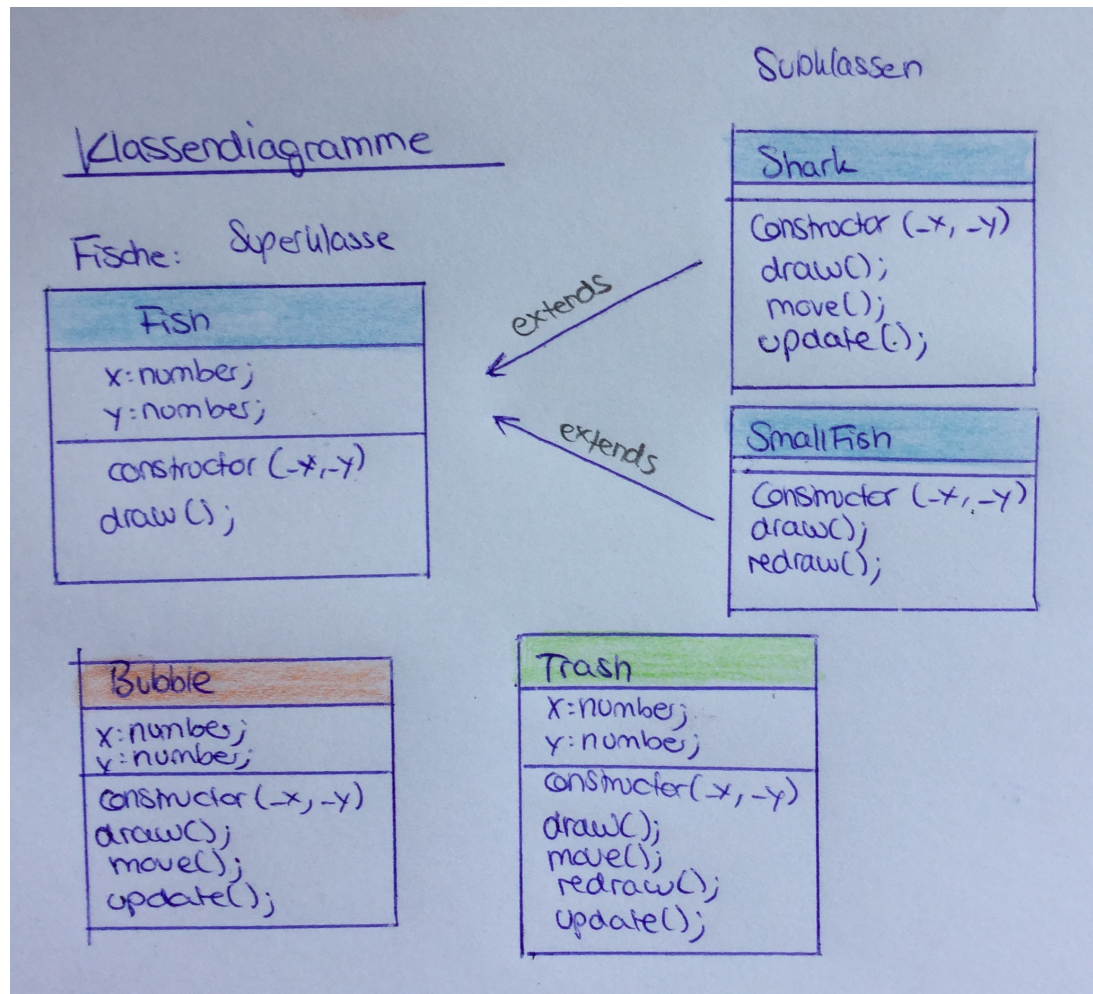 Klassendiagramme
Fische: Superklasse
Fish
x:number;
y:number;
constructor (_x,_y)
draw();
extends
extends
Subklassen
Shark
Constructor (_x, _y)
draw();
move();
update();
SmallFish
Constructor (_x, _y)
draw();
redraw();
Bubble
x:number;
y:number;
constructor(_x, _y)
draw();
move();
update();
Trash
x:number;
y:number;
constructor(_x, _y)
draw();
move();
redraw();
update();